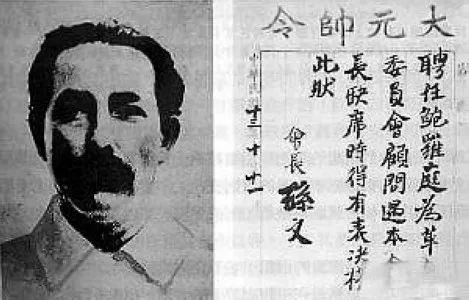 大元帥令
聘任鮑羅庭為革
委員會顧問遇本
長缺席時得有表決
此狀
會長 孫文
中華民 十三 十 十一